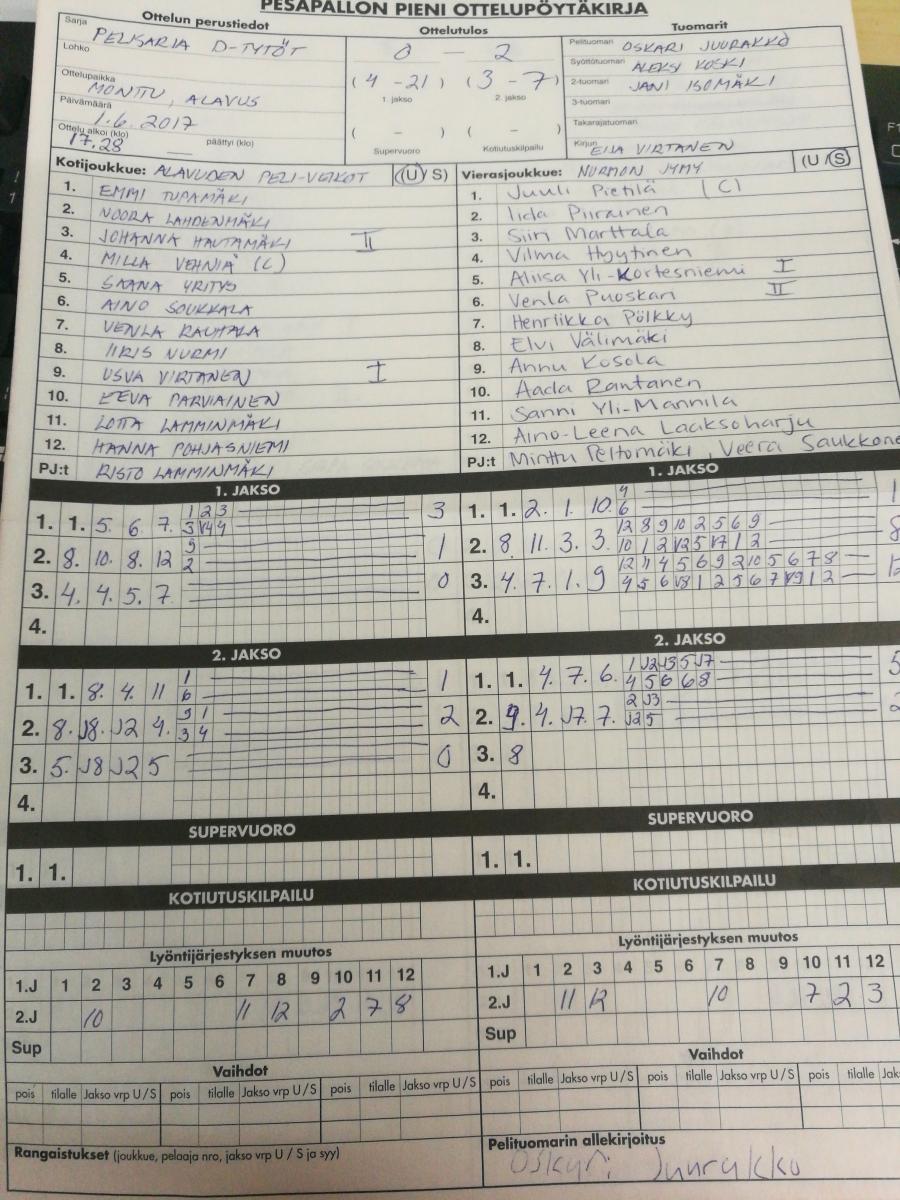 PESÄPALLON PIENI OTTELUPÖYTÄKIRJA
Ottelun perustiedot
Sarja
PELISARJA D-TYTÖT
Lohko
Ottelupaikka
MONTTU, ALAVUS
Päivämäärä
1.6.2017
Ottelu alkoi (klo) päättyi (klo)
17.28
Ottelutulos
0 - 2
(4 - 21) (3 - 7)
1. jakso 2. jakso
( - ) ( - )
Supervuoro Kotiutuskilpailu
Tuomarit
Pelituomari OSKARI JUURAKKO
Syöttötuomari ALEKSI KOSKI
2-tuomari JANI ISOMÄKI
3-tuomari
Takarajatuomari
Kirjuri EIJA VIRTANEN
Kotijoukkue: ALAVUDEN PELI-VEIKOT (U/S)
1. EMMI TUPAMÄKI
2. NOORA LAHDENMÄKI
3. JOHANNA HAUTAMÄKI II
4. MILLA VEHNIÄ (C)
5. SAANA YRITYS
6. AINO SOUKKALA
7. VENLA RAUHALA
8. IIRIS NURMI
9. USVA VIRTANEN I
10. EEVA PARVIAINEN
11. LOTTA LAMMINMÄKI
12. HANNA POHJASNIEMI
PJ:t RISTO LAMMINMÄKI
Vierasjoukkue: NURMON JYMY (U/S)
1. Juuli Pietilä (C)
2. Iida Piirainen
3. Siiri Marttala
4. Vilma Hyytinen
5. Aliisa Yli-Kortesniemi I
6. Venla Puoskari II
7. Henriikka Pölkky
8. Elvi Välimäki
9. Annu Kosola
10. Aada Rantanen
11. Sanni Yli-Mannila
12. Aino-Leena Laaksoharju
PJ:t Minttu Peltomäki, Veera Saukkone
1. JAKSO
1. 1. 5. 6. 7. 1 2 3 3
3 V4 4
2. 8. 10. 8. 12 9 1
2
3. 4. 4. 5. 7 0
4.
2. JAKSO
1. 1. 8. 4. 11 1 1
6
2. 8. J8. J2 4. 3 1 2
3 4
3. 5. J8 J2 5 0
4.
SUPERVUORO
1. 1.
KOTIUTUSKILPAILU
Lyöntijärjestyksen muutos
1.J 1 2 3 4 5 6 7 8 9 10 11 12
2.J 10 11 12 2 7 8
Sup
Vaihdot
pois tilalle Jakso vrp U/S pois tilalle Jakso vrp U/S pois tilalle Jakso vrp U/S
Rangaistukset (joukkue, pelaaja nro, jakso vrp U/S ja syy)
1. JAKSO
1. 1. 2. 1. 10. 4 1
6
2. 8. 11. 3. 3. 12 8 9 10 2 5 6 9 8
10 1 2 V12 5 V7 1 2
3. 4. 7. 1. 9 12 11 4 5 6 9 2 10 5 6 7 8 12
4 5 6 V8 1 2 5 6 7 V9 1 2
4.
2. JAKSO
1. 1. 4. 7. 6. 1 J2 J3 5 J7 5
4 5 6 6 8
2. 9. 4. J7. 7. 2 J3 2
J2 5
3. 8
4.
SUPERVUORO
1. 1.
KOTIUTUSKILPAILU
Lyöntijärjestyksen muutos
1.J 1 2 3 4 5 6 7 8 9 10 11 12
2.J 11 12 10 7 2 3
Sup
Vaihdot
pois tilalle Jakso vrp U/S pois tilalle Jakso vrp U/S pois tilalle Jak
Pelituomarin allekirjoitus
Oskari Juurakko